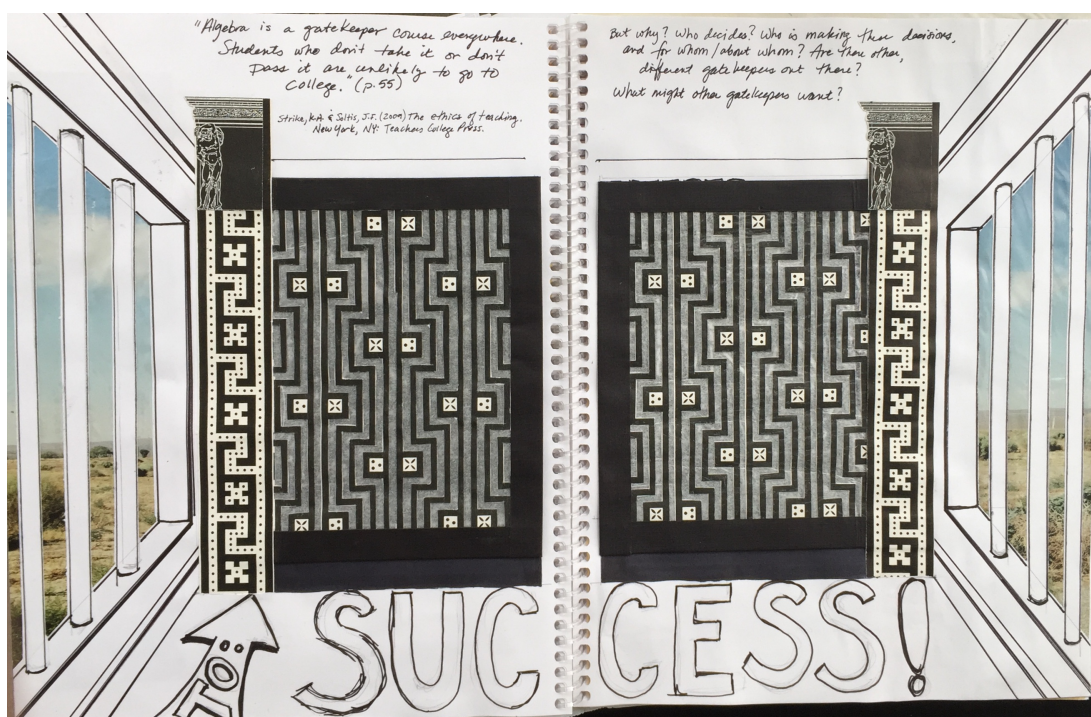 "Algebra is a gatekeeper course everywhere.
Students who don't take it or don't
pass it are unlikely to go to
College." (p.55)
Strike, K.A. & Soltis, J.F. (2009) The ethics of teaching.
New York, NY: Teachers College Press.
But why? Who decides? Who is making these decisions,
and for whom/about whom? Are there other,
different gatekeepers out there?
What might other gatekeepers want?
TO:
SUCCESS!